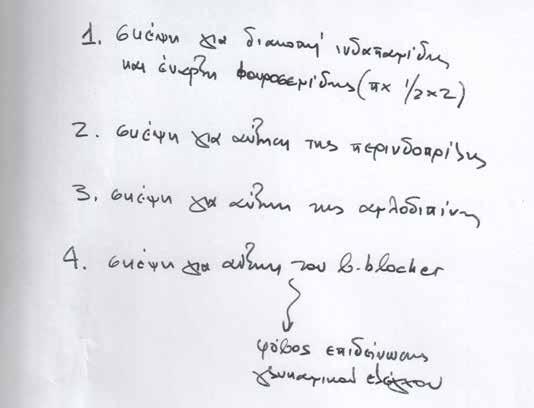 1. σκέψη για διακοπή ινδαπαμίδης
και έναρξη φουροσεμίδης (πχ 1/2 x 2)
2. σκέψη για αύξηση της περινδοπρίλης
3. σκέψη για αύξηση της αμλοδιπίνης
4. σκέψη για αύξηση του b-blocker
φόβος επιδείνωσης
γλυκαιμικού ελέγχου